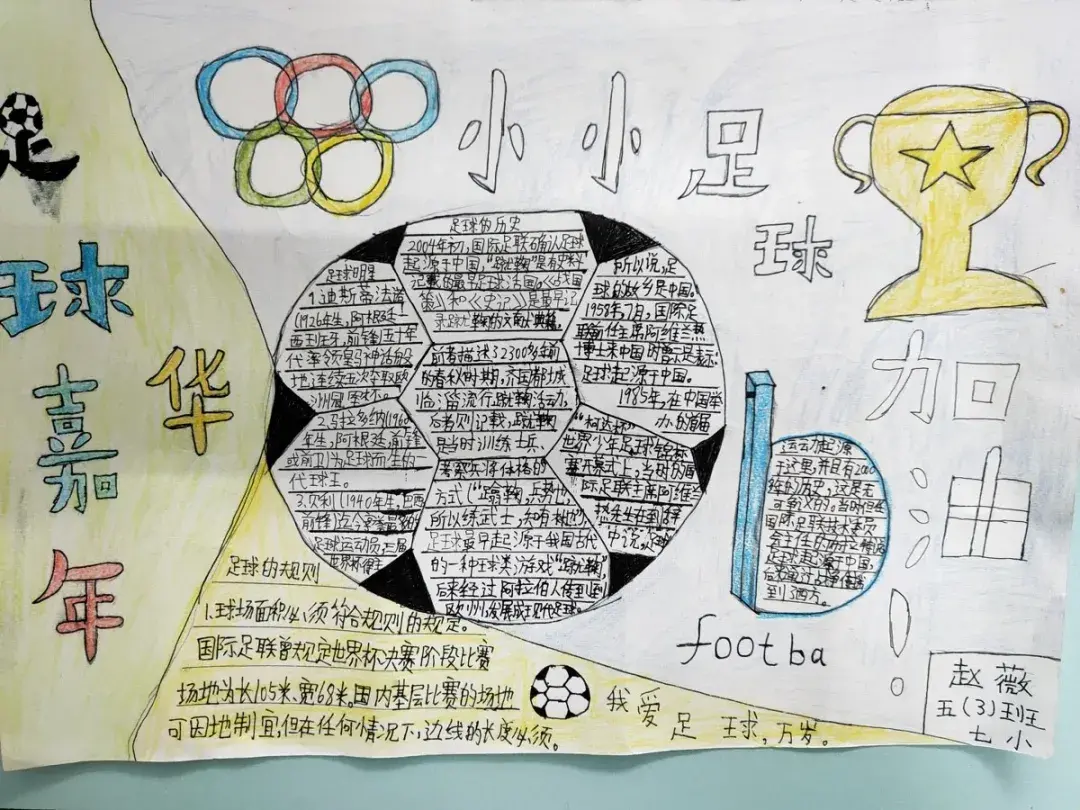 足
球
嘉
年
华
小小足
球
加油
足球的历史
2004年初,国际足联确认足球
起源于中国,“蹴鞠”是有史料
记载的最早足球法国。《战国
策》和《史记》是最早记
录蹴鞠的文献典籍。
前者描述了2300多年前
的春秋时期,齐国都城
临淄流行蹴鞠活动,
后者则记载,蹴鞠
是当时训练士兵、
考察兵将体格的
方式(“蹋鞠,兵势也,
所以练武士,知有材也”)。
足球最早起源于我国古代
的一种球类游戏“蹴鞠”,
后来经过阿拉伯人传到到
欧州,发展成现代足球。
所以说,足
球的故乡是中国。
1958年7月,国际足
联前任主席阿维兰热
博士来中国时曾表示:
足球起源于中国。
1985年,在中国举
办的首届
“柯达杯”
世界少年足球锦标
赛开幕式上,当时的国
际足联主席阿维兰
热先生在到辞
中说,足球
足球明星
1.迪斯蒂法诺
(1926年生,阿根廷-
西班牙,前锋)五十年
代率领皇马神话般
地连续五次夺取欧
洲冠军杯。
2.马拉多纳(1960
年生,阿根廷,前锋
或前卫)为足球而生的一
代球王。
3.贝利(1940年生,巴西
前锋)迄今最
足球运动员,三届
世界杯得主
运动起源
于这里,并且有2000
年的历史,这是无
可争议的。当时但任
国际足联技术委员
会主任的
足球起源于中国,
后来通过
到了西方。
footba
足球的规则
1.球场面积必须符合规则的规定。
国际足联曾规定世界杯决赛阶段比赛
场地为长105米、宽68米。国内基层比赛的场地
可因地制宜,但在任何情况下,边线的长度必须。
我爱足球,万岁。
赵薇
五(3)班
七小